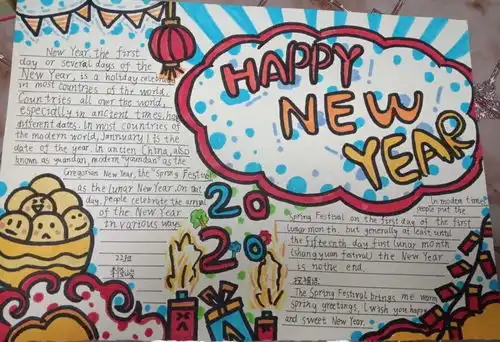 HAPPY
NEW
YEAR
New Year, the first
day or several days of the
New Year, is a holiday celebrated
in most countries of the world.
Countries all over the world,
especially in ancient times, have
different dates. In most countries of
the modern world, January 1 is the
date of the year. In antien China, also
known as yuandan, modern "yuandan" as the
Gregorian New Year, the "Spring Festival"
as the lunar New Year. On that
day, people celebrate the arrival
of the New Year
in various ways.
20
20
In modern times
people put the
Spring Festival on the first day of the first
lunar month, but generally at least until
the fifteenth day first lunar month
(shangyuan festival) the New Year
is not the end.
The Spring Festival brings me warm
spring greetings, I wish you happy
and sweet New Year.